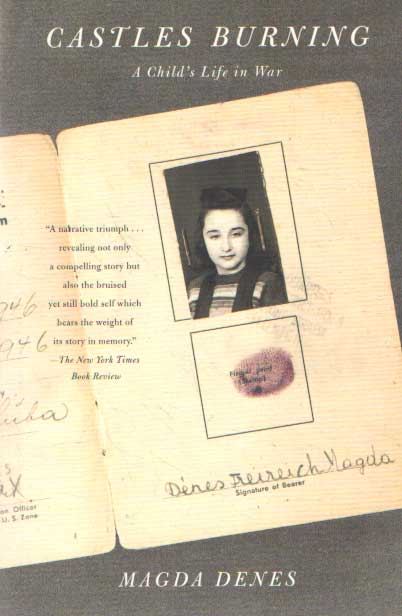 CASTLES BURNING
A Child's Life in War
"A narrative triumph . . .
revealing not only
a compelling story but
also the bruised
yet still bold self which
bears the weight of
its story in memory."
—The New York Times
Book Review
1946
1946
on Officer
U. S. Zone
Finger print
Dénes Freireich Magda
Signature of Bearer
MAGDA DENES